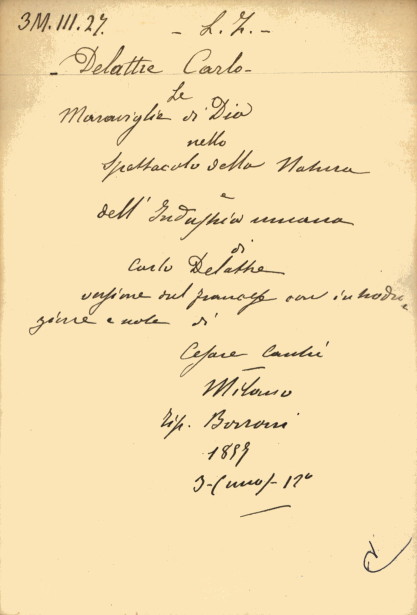 3M.III.27. - L. Z. -
- Delattre Carlo -
Le
Maraviglie di Dio
nello
Spettacolo della Natura
e
dell' Industria umana
di
Carlo Delattre
versione dal francese con introdu-
zione e note di
Cesare Cantù
Milano
Tip. Borroni
3-(uno)- 12°